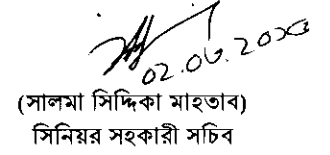 02.06.20
(সালমা সিদ্দিকা মাহতাব)
সিনিয়র সহকারী সচিব